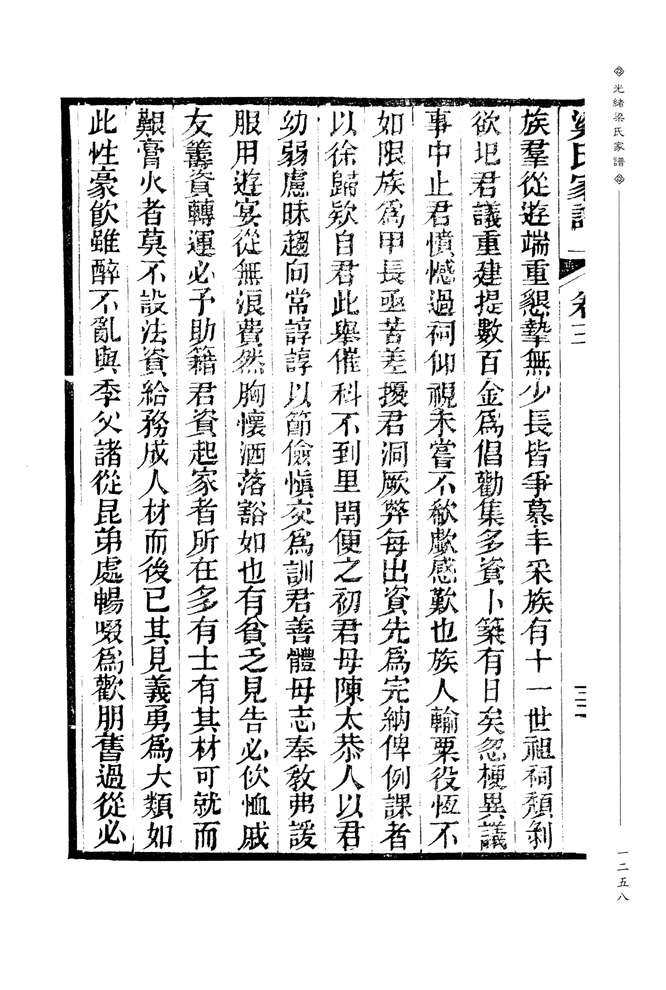 光緒梁氏家譜
一二五八
梁氏家譜 卷三 三
族羣從遊端重懇摯無少長皆爭慕丰采族有十一世祖祠頹剝
欲圯君議重建提數百金爲倡勸集多資卜築有日矣忽梗異議
事中止君憤憾過祠仰視未嘗不欷歔感歎也族人輸粟役恆不
如限族爲甲長亟苦差擾君洞厥弊每出資先爲完納俾例課者
以徐歸欵自君此舉催科不到里閈便之初君母陳太恭人以君
幼弱慮昧趨向常諄諄以節儉愼交爲訓君善體母志奉教弗諼
服用遊宴從無浪費然胸懷洒落豁如也有貧乏見告必佽恤戚
友籌資轉運必予助籍君資起家者所在多有士有其材可就而
艱膏火者莫不設法資給務成人材而後已其見義勇爲大類如
此性豪飲雖醉不亂與季父諸從昆弟處暢啜爲歡朋舊過從必